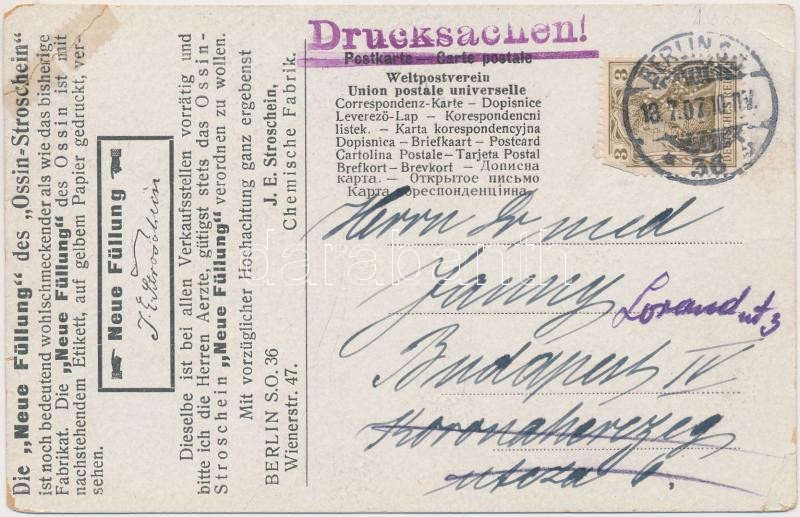 Drucksachen!
Postkarte — Carte postale
Weltpostverein
Union postale universelle
Correspondenz-Karte – Dopisnice
Leverező-Lap – Korespondencni
listek. – Karta korespondencyjna
Dopisnica – Briefkaart – Postcard
Cartolina Postale – Tarjeta Postal
Brefkort – Brevkort – Дописна
карта. – Открытое письмо
Карта кореспонденційна.
BERLIN S.O.
18.7.07.
36
3
3
Herrn Dr med
Janny
Lorand ut 3
Budapest IV
Koronaherczeg
utcza 6.
Die „Neue Füllung" des „Ossin-Stroschein"
ist noch bedeutend wohlschmeckender als wie das bisherige
Fabrikat. Die „Neue Füllung" des Ossin ist mit
nachstehendem Etikett, auf gelbem Papier gedruckt, ver-
sehen.
Neue Füllung
J. E. Stroschein
Dieselbe ist bei allen Verkaufsstellen vorrätig und
bitte ich die Herren Aerzte, gütigst stets das Ossin-
Stroschein „Neue Füllung" verordnen zu wollen.
Mit vorzüglicher Hochachtung ganz ergebenst
J. E. Stroschein,
Chemische Fabrik.
BERLIN S.O. 36
Wienerstr. 47.
darabanth